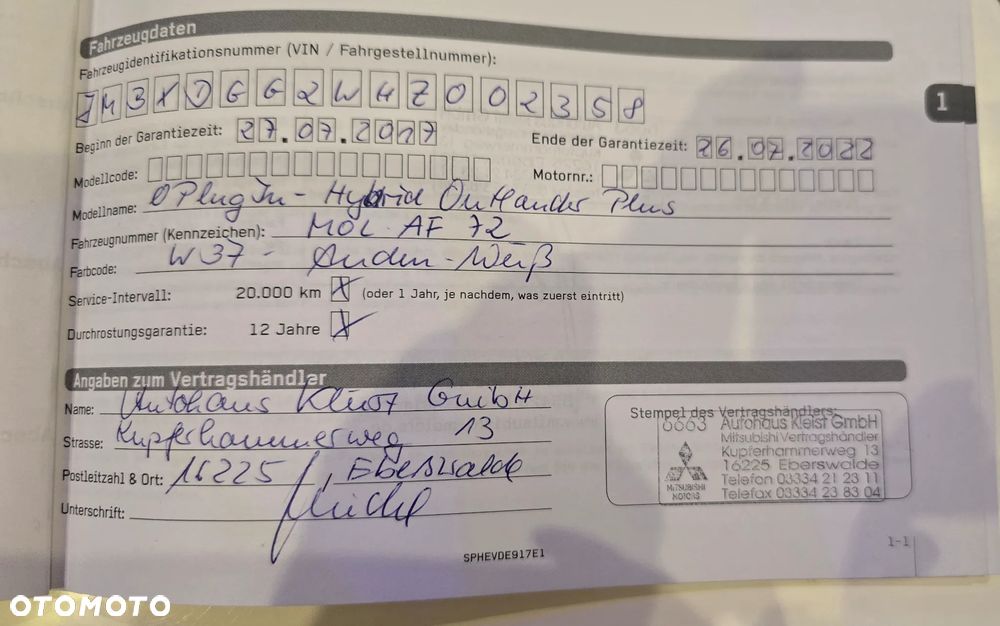 Fahrzeugdaten
Fahrzeugidentifikationsnummer (VIN / Fahrgestellnummer):
JM3XDGG2WHZ002358
1
Beginn der Garantiezeit: 27.07.2017 Ende der Garantiezeit: 26.07.2022
Modellcode: Motornr.:
Modellname: PlugIn-Hybrid Outlander Plus
Fahrzeugnummer (Kennzeichen): MOL-AF 72
Farbcode: W37 - Weiß
Service-Intervall: 20.000 km X (oder 1 Jahr, je nachdem, was zuerst eintritt)
Durchrostungsgarantie: 12 Jahre X
Angaben zum Vertragshändler
Name: Autohaus Kleist GmbH
Strasse: Kupferhammerweg 13
Postleitzahl & Ort: 16225, Eberswalde
Unterschrift:
Stempel des Vertragshändlers:
6663 Autohaus Kleist GmbH
Mitsubishi Vertragshändler
Kupferhammerweg 13
16225 Eberswalde
Telefon 03334 21 23 11
Telefax 03334 23 83 04
MITSUBISHI
MOTORS
SPHEVDE917E1
1-1
OTOMOTO